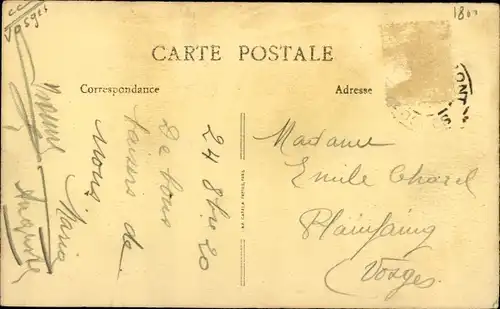 Vosges
CARTE POSTALE
Correspondance
Adresse
24 8bre 20
De bons
baisers de
nous
Maria
Madame
Emile Charel
Plainfaing
Vosges